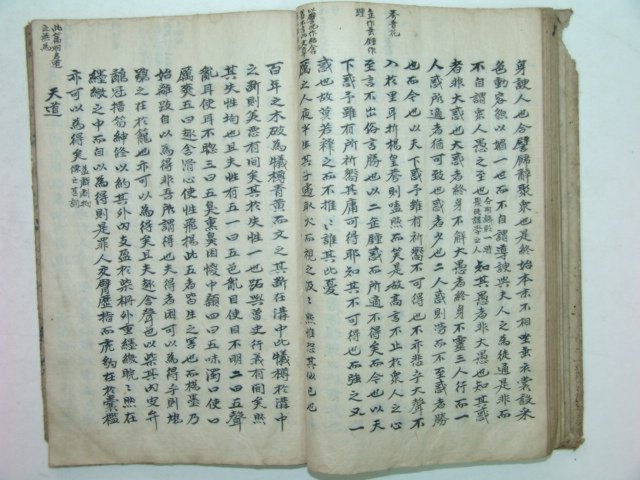 身諛人也合譬飾辭聚衆也是終始本末不相坐垂衣裳設采
色動容貌以媚一世而不自謂導諛與夫人之為徒通是非而
不自謂衆人愚之至也知其愚者非大愚也知其惑
者非大惑也大惑者終身不解大愚者終身不靈三人行而一
人惑所適者猶可致也惑者少也二人惑則勞而不至惑者勝
也而今也以天下惑予雖有祈嚮不可得也不亦悲乎大聲不
入於里耳折楊皇荂則嗑然而笑是故高言不止於衆人之心
至言不出俗言勝也以二缶鍾惑而所適不得矣而今也以天
下惑予雖有祈嚮其庸可得耶知其不可得也而强之又一
惑也故莫若釋之而不推〻誰其比憂
厲之人夜半生其子遽取火而視之汲〻然惟恐其似己也
百年之木破為犧樽青黃而文之其斷在溝中比犧樽於溝中
之斷則美惡有間矣其於失性一也跖與曾史行義有間矣然
其失性均也且夫失性有五一曰五色亂目使目不明二曰五聲
亂耳使耳不聰三曰五臭熏鼻困惾中顙四曰五味濁口使口
厲爽五曰趣舍滑心使性飛揚此五者皆生之害也而楊墨乃
始離跂自以為得非吾所謂得也夫得者困可以為得乎則鳩
鴞之在於籠也亦可以為得矣且夫趣舍聲色以柴其內皮弁
鷸冠搢笏紳修以約其外內支盈於柴柵外重纆繳睆〻然在
纆繳之中而自以為得則是罪人交臂歷指而虎豹在於囊檻
亦可以為得矣
天道